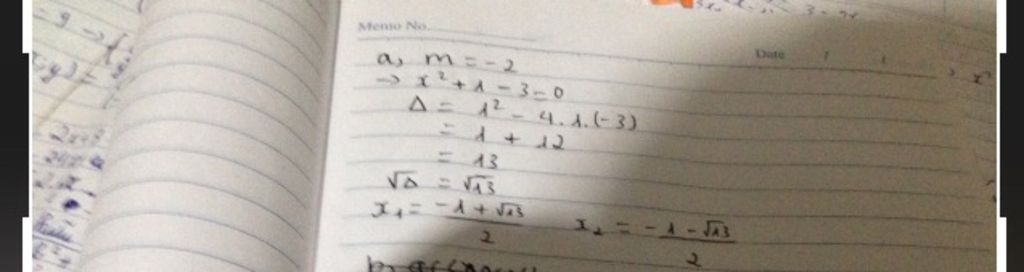 Memo No.
Date / /
a, m = -2
→ x² + 1 - 3 = 0
Δ = 1² - 4.1.(-3)
= 1 + 12
= 13
√Δ = √13
x₁ = (-1 + √13)/2 x₂ = (-1 - √13)/2